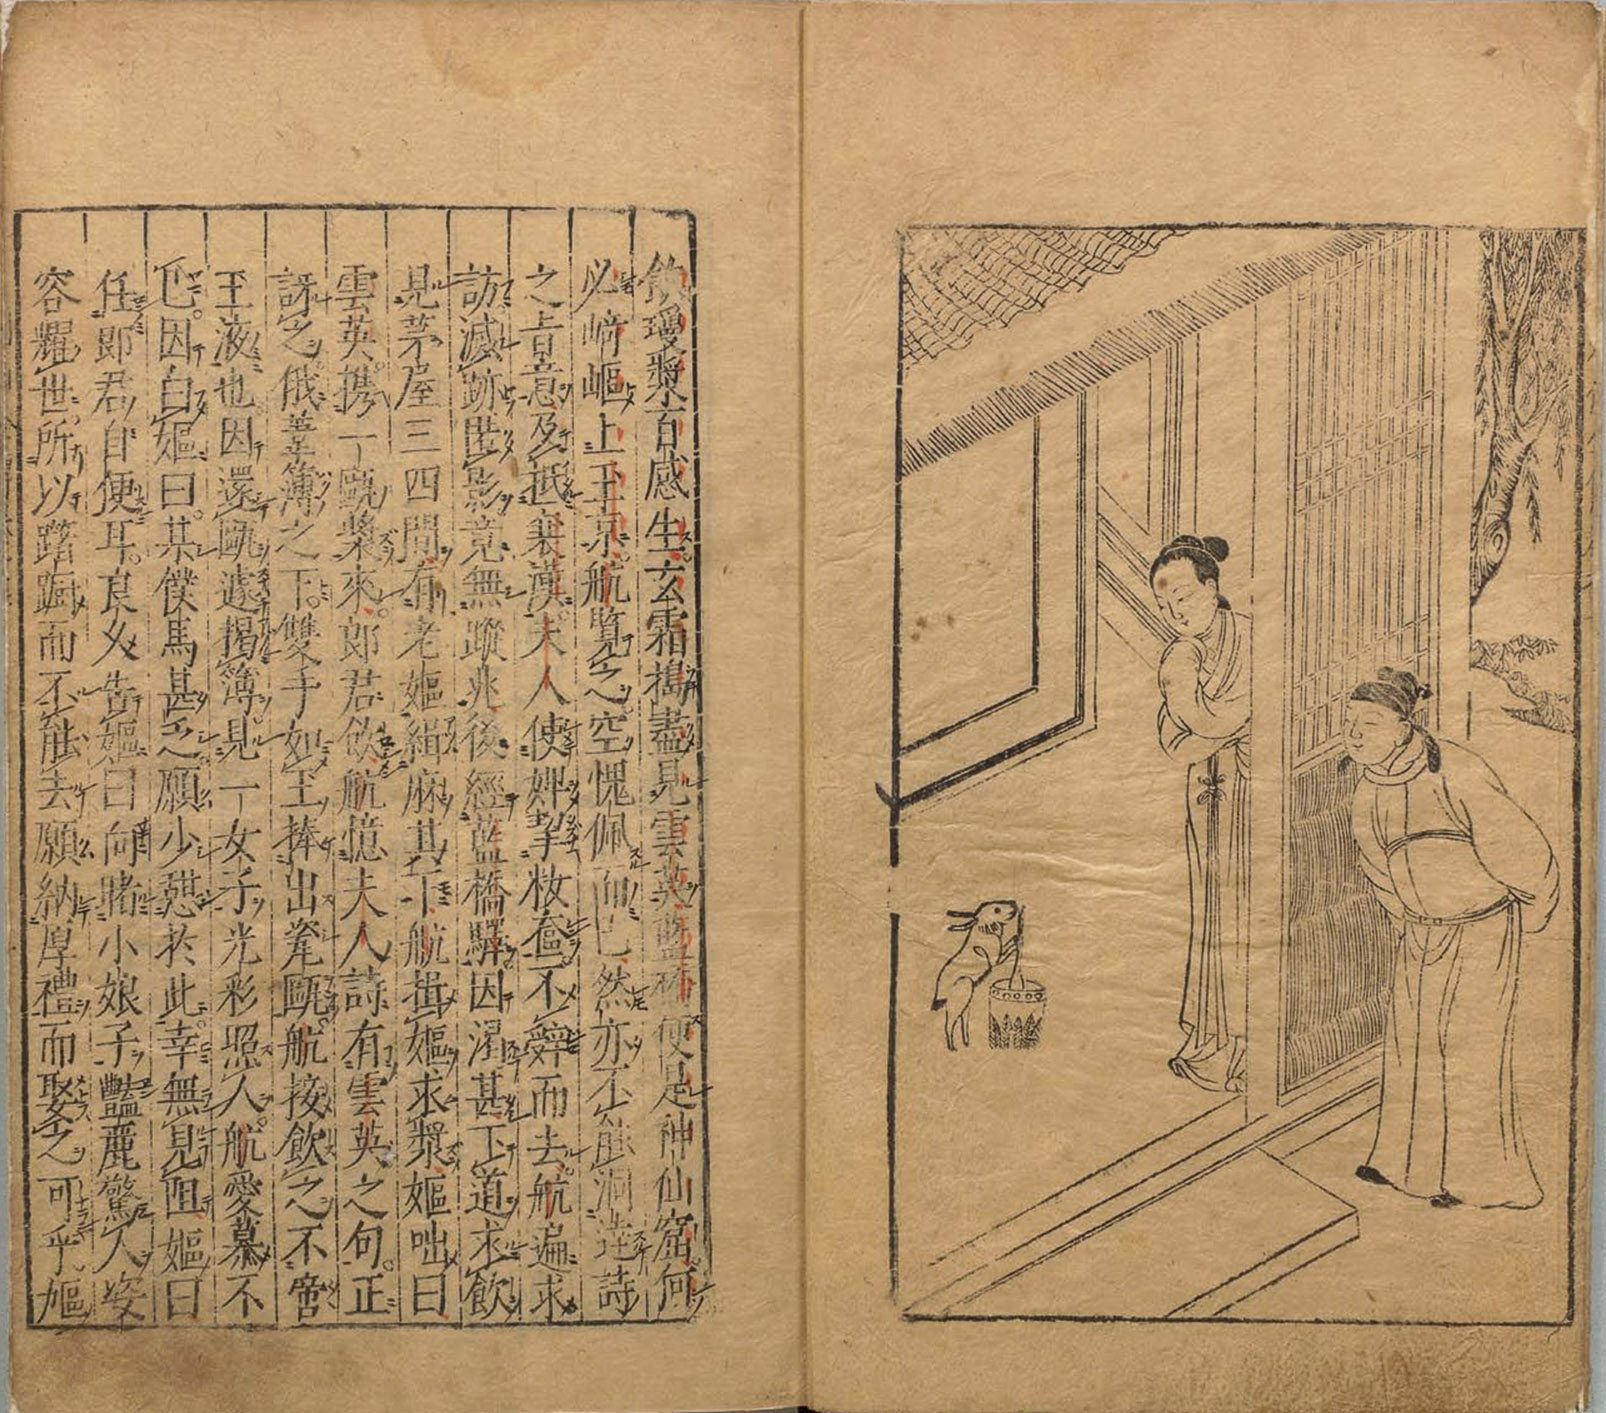 飲瓊漿百感生玄霜搗盡見雲英藍橋便是神仙窟何
必崎嶇上玉京航覽之空愧佩而已然亦不能洞達詩
之旨意及抵襄漢夫人使婢挈妝奩不辭而去航遍求
訪滅跡匿影竟無蹤兆後經藍橋驛因渴甚下道求飲
見茅屋三四間有老嫗緝麻其下航揖嫗求漿嫗咄曰
雲英携一甌漿來郎君飲航憶夫人詩有雲英之句正
訝之俄葦簿之下雙手如玉捧出甆甌航接飲之不啻
玉液也因還甌遽揭簿見一女子光彩照人航愛慕不
已因白嫗曰某僕馬甚乏願少憩於此幸無見阻嫗曰
任郎君自便耳良久告嫗曰向睹小娘子豔麗驚人姿
容耀世所以躊躕而不能去願納厚禮而娶之可乎嫗